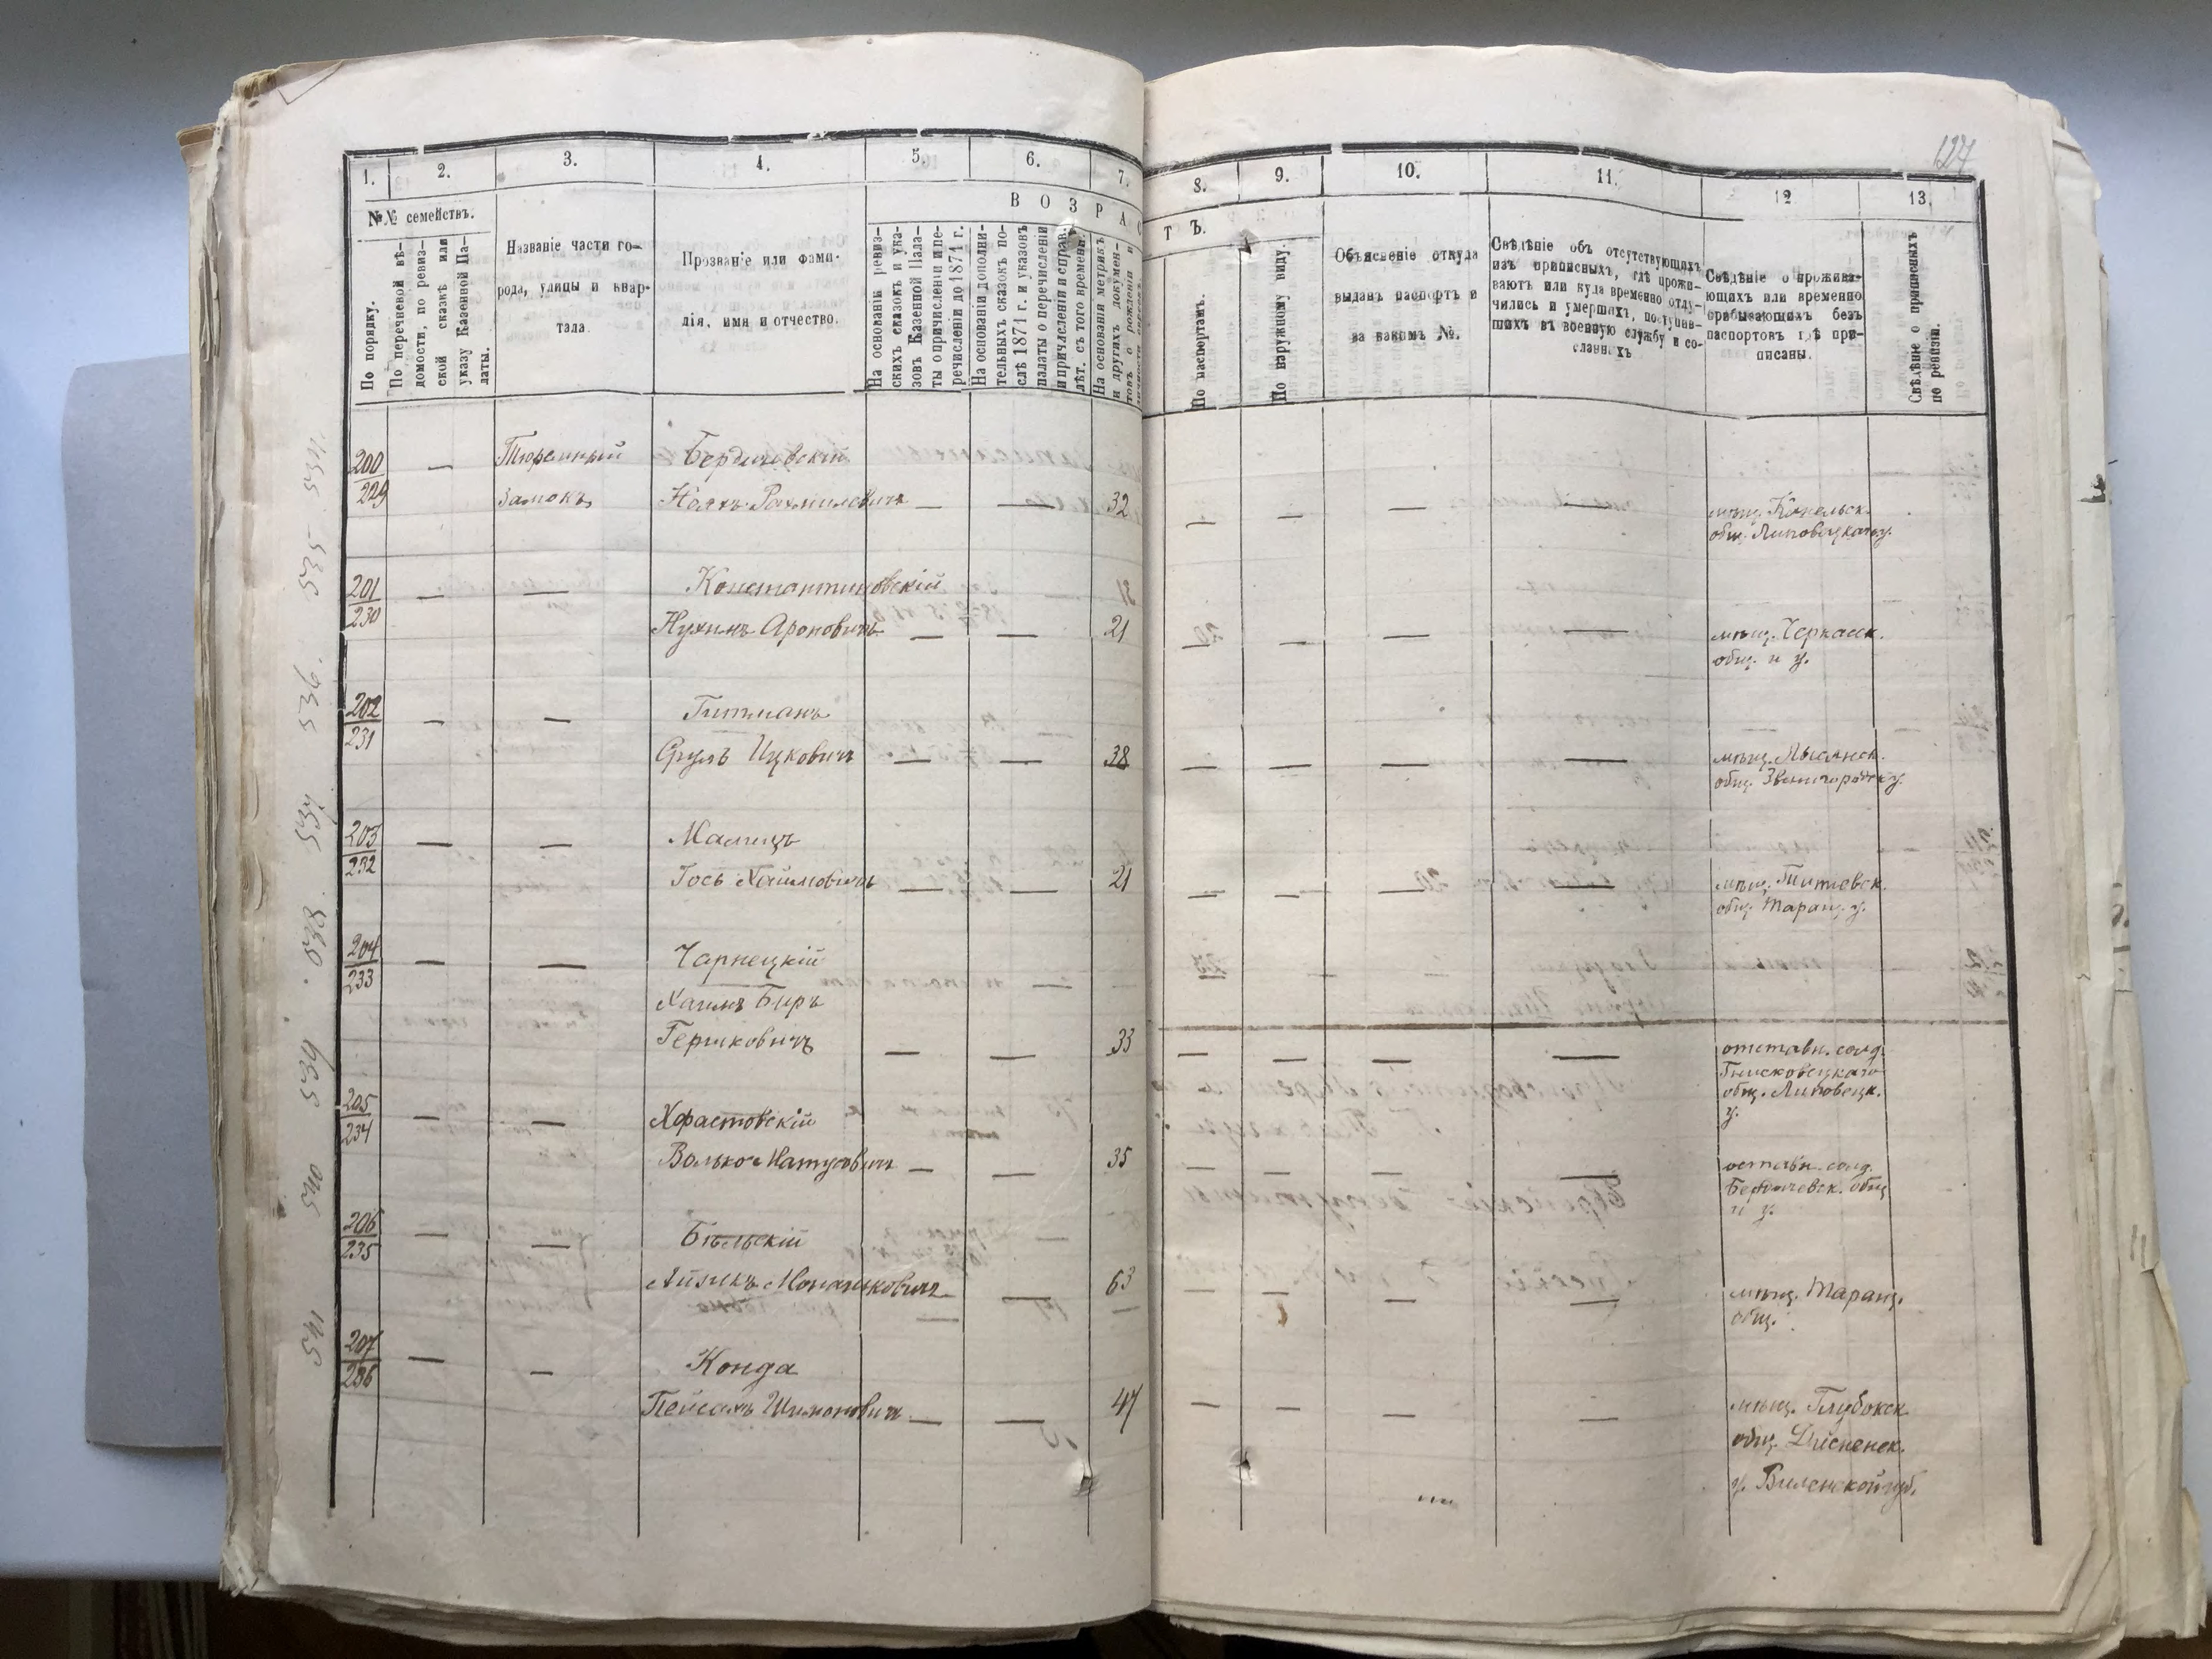 127
1.
2.
3.
4.
5.
6.
7.
8.
9.
10.
11.
12
13.
№№ семействъ.
В О З Р А С
Т Ъ.
По порядку.
По перечневой вѣ-
домости, по ревиз-
ской сказкѣ или
указу Казенной Па-
латы.
Названіе части го-
рода, улицы и квар-
тала
Прозваніе или фами-
лія, имя и отчество.
На основаніи ревиз-
скихъ сказокъ и ука-
зовъ Казенной Пала-
ты о причисленіи и пе-
речисленіи до 1871 г.
На основаніи дополни-
тельныхъ сказокъ по-
слѣ 1871 г. и указовъ
палаты о перечисленіи
и причисленіи и справ.
лѣт. съ того времени.
На основаніи метрикъ
и другихъ докумен-
товъ о рожденіи и
По паспортамъ.
По наружному виду.
Объясненіе откуда
выданъ паспортъ и
за какимъ №.
Свѣдѣніе объ отсутствующихъ
изъ приписныхъ, гдѣ прожи-
ваютъ или куда временно отлу-
чились и умершихъ, поступив-
шихъ въ военную службу и со-
сланныхъ
Свѣдѣніе о прожива-
ющихъ или временно
прибывающихъ безъ
паспортовъ гдѣ при-
писаны.
Свѣдѣніе о приписныхъ
по ревизіи.
534.
200
229
—
Тюремный
Бердичевскій
замокъ
Ноахъ Рахмилевичъ — — 32 — — — —
мѣщ. Конельск.
общ. Липовецкаго у.
535
201
230
— —
Константиновскій
Нухимъ Ароновичъ — — 21 20 — — —
мѣщ. Черкасск.
общ. и у.
536.
202
231
— —
Гитманъ
Сруль Ицковичъ — — 38 — — — —
мѣщ. Лысянск.
общ. Звенигородск у.
537
203
232
— —
Малицъ
Іось Хаимовичъ — — 21 — — — —
мѣщ. Титовск.
общ. Таращ. у.
538.
204
233
— —
Чарнецкій
Хаимъ Беръ
Гершковичъ — — 33 — — — —
отставн. солд.
общ. Липовецк.
у.
539
205
234
— —
Хфастовскій
Волько Матусовичъ — — 35 — — — —
оставн. солд.
Бердичевск. общ
и у.
540
206
235
— —
Бѣльскій
Айзикъ — 63 — — — —
мѣщ. Таращ.
общ.
541
207
236
— —
Конда
Пейсахъ Шимоновичъ — — 47 — — — —
мѣщ. Глубокск.
общ. Дисненск.
у. Виленской губ.